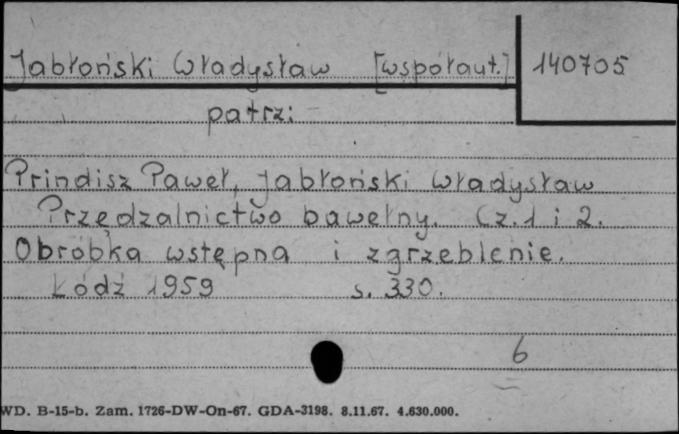 Jabłoński Władysław [współaut.] 140705
patrz:
Prindisz Paweł, Jabłoński Władysław
Przędzalnictwo bawełny. Cz. 1 i 2.
Obróbka wstępna i zgrzeblenie.
Łódź 1959 s. 330.
6
WD. B-15-b. Zam. 1726-DW-On-67. GDA-3198. 8.11.67. 4.630.000.